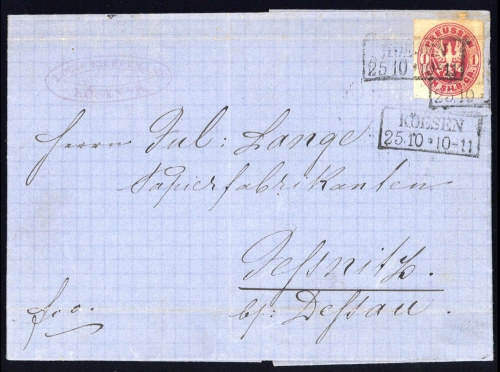 KOESEN
25 10 * 10-11
PREUSSEN
1 1
EIN SILB. GR.
25 10
KOESEN
25.10 * 10-11
Herrn Jul: Lange
Papierfabrikanten
Jessnitz.
bei: Dessau.
fco.